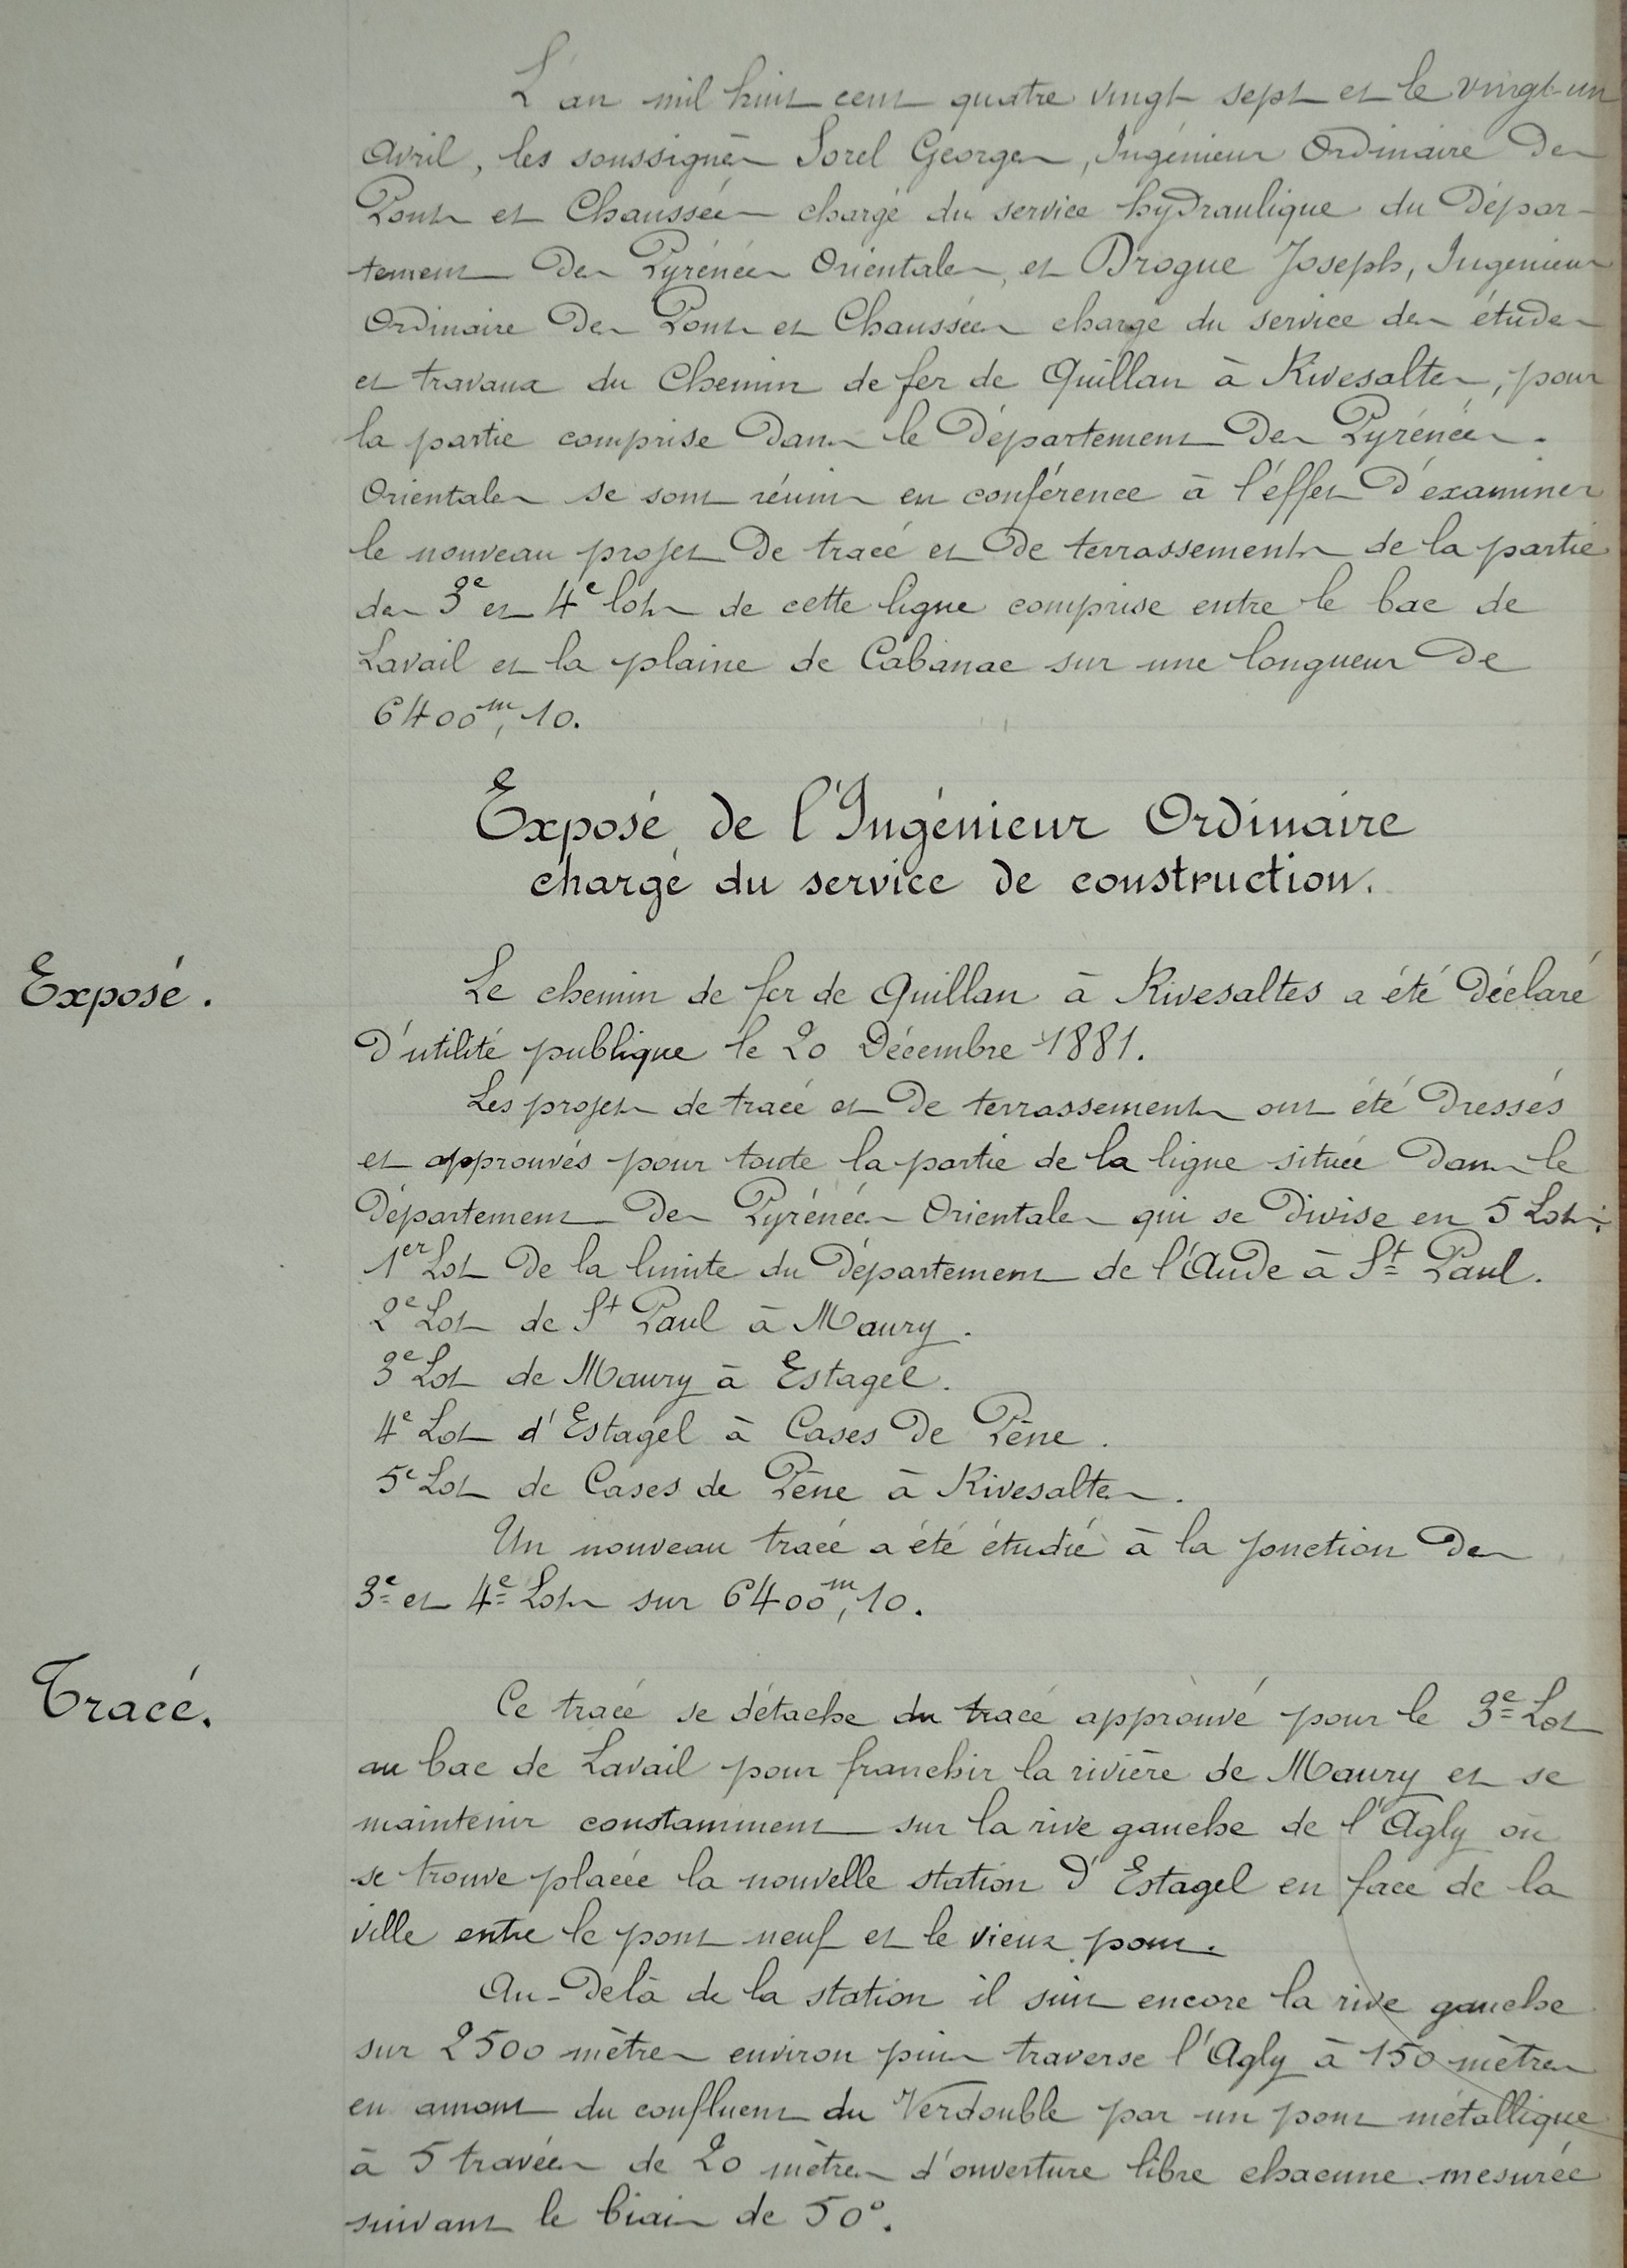 L'an mil huit cent quatre vingt sept et le vingt-un
Avril, les soussignés Sorel Georges, Ingénieur Ordinaire des
Ponts et Chaussées chargé du service hydraulique du Dépar-
tement des Pyrénées Orientales, et Drogue Joseph, Ingénieur
Ordinaire des Ponts et Chaussées chargé du service des études
et travaux du Chemin de fer de Quillan à Rivesaltes, pour
la partie comprise dans le Département des Pyrénées.
Orientales se sont réunis en conférence à l'éffet d'examiner
le nouveau projet de tracé et de terrassements de la partie
des 3e et 4e lots de cette ligne comprise entre le bac de
Lavail et la plaine de Cabanac sur une longueur de
6400m,10.
Exposé de l'Ingénieur Ordinaire
chargé du service de construction.
Exposé.
Le chemin de fer de Quillan à Rivesaltes a été déclaré
d'utilité publique le 20 Décembre 1881.
Les projets de tracé et de terrassements ont été dressés
et approuvés pour toute la partie de la ligne située dans le
Département des Pyrénées Orientales qui se divise en 5 Lots:
1er Lot De la limite du Département de l'Aude à St Paul.
2e Lot de St Paul à Maury.
3e Lot de Maury à Estagel.
4e Lot d'Estagel à Cases de Pène.
5e Lot de Cases de Pène à Rivesaltes.
Un nouveau tracé a été étudié à la jonction des
3e et 4e Lots sur 6400m,10.
Tracé.
Ce tracé se détache du tracé approuvé pour le 3e Lot
au bac de Lavail pour franchir la rivière de Maury et se
maintenir constamment sur la rive gauche de l'Agly où
se trouve placée la nouvelle station d'Estagel en face de la
ville entre le pont neuf et le vieux pont.
Au-delà de la station il suit encore la rive gauche
sur 2500 mètres environ puis traverse l'Agly à 150 mètres
en amont du confluent du Verdouble par un pont métallique
à 5 travées de 20 mètres d'ouverture libre chacune mesurée
suivant le biais de 50°.